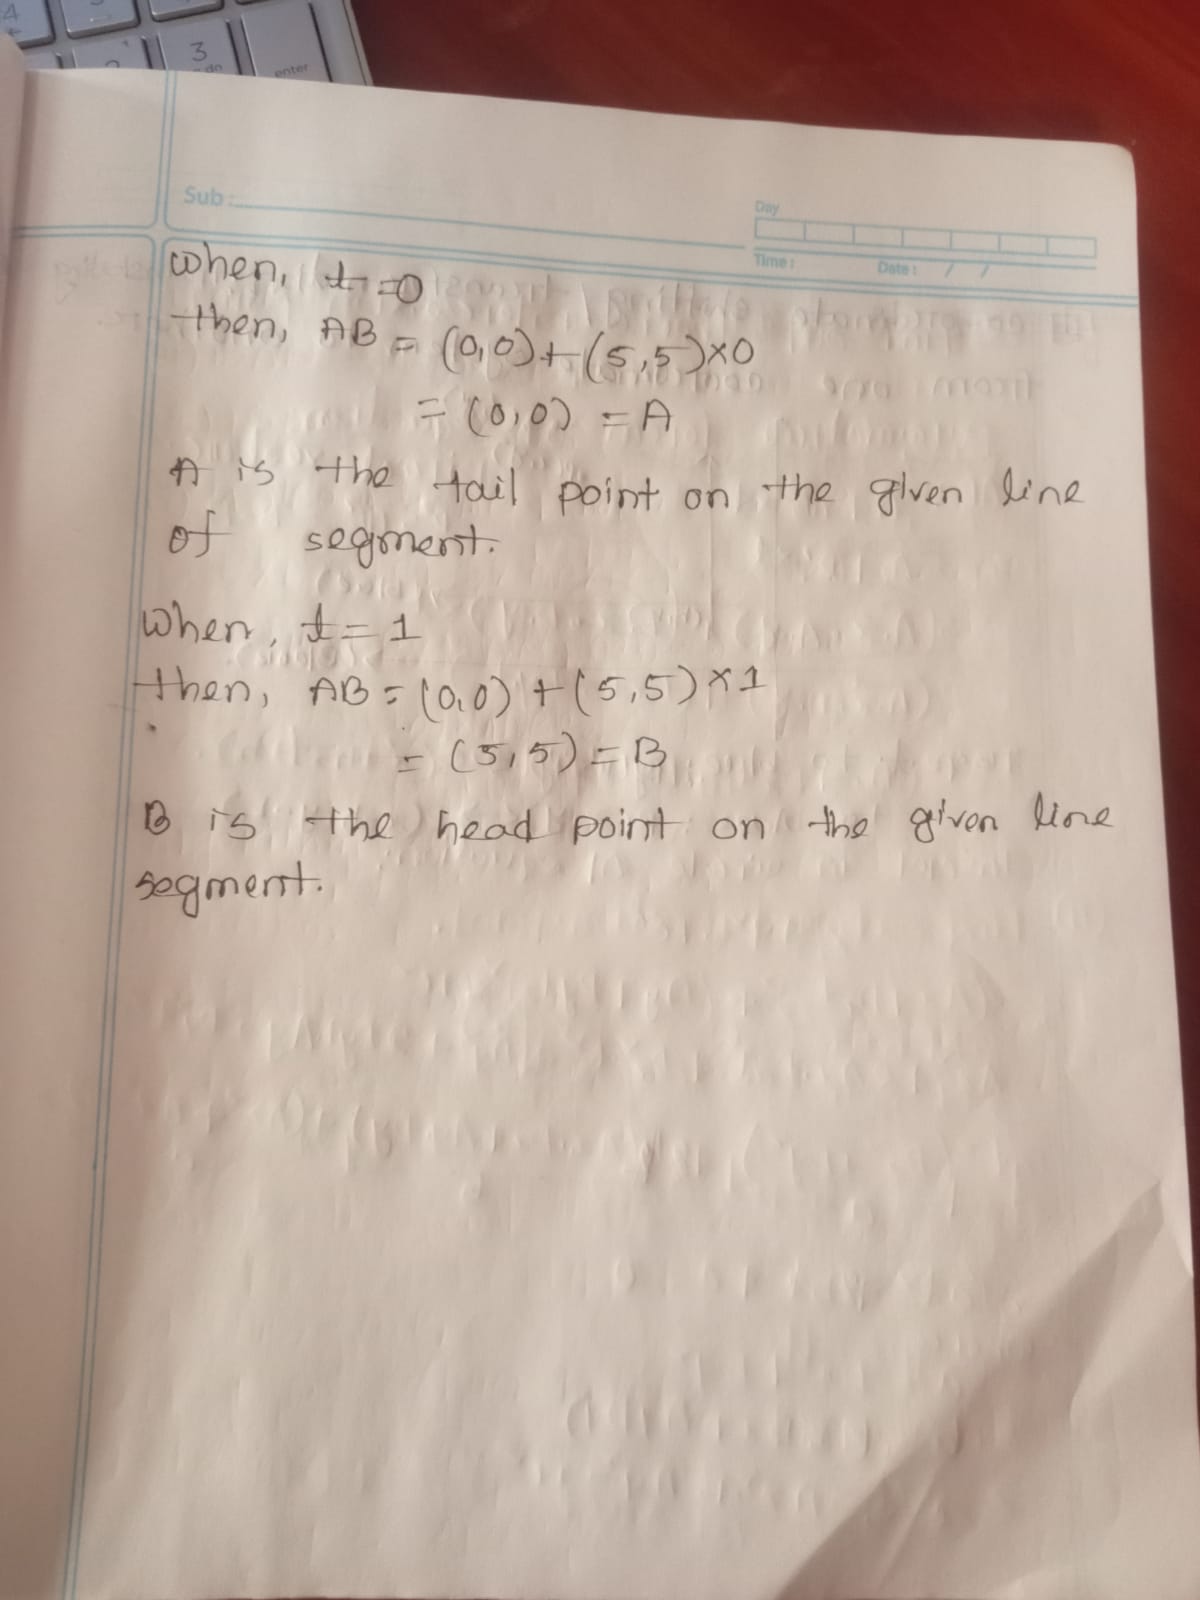 4
3
enter
Sub:
Day
Time:
Date: / /
when, t=0
then, AB = (0,0)+(5,5)×0
= (0,0) = A
A is the tail point on the given line
of segment.
When, t=1
then, AB = (0,0) + (5,5)×1
= (5,5) = B
B is the head point on the given line
segment.